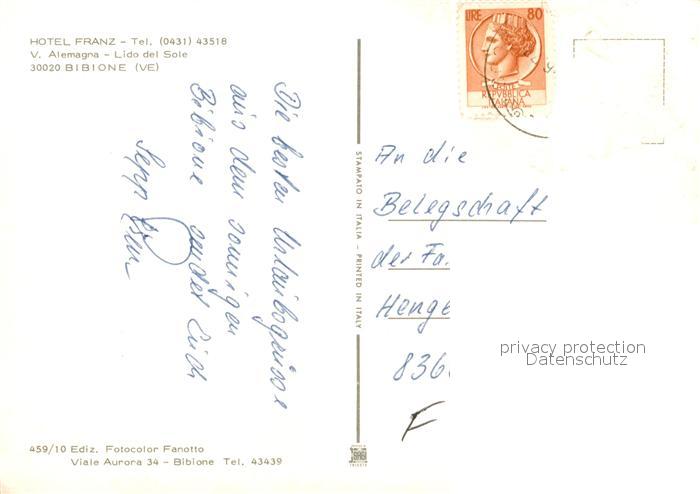 HOTEL FRANZ - Tel. (0431) 43518
V. Alemagna - Lido del Sole
30020 BIBIONE (VE)
Die besten Urlaubsgrüsse
aus dem sonnigen
Bibione sendet Euch
Sepp
459/10 Ediz. Fotocolor Fanotto
Viale Aurora 34 - Bibione Tel. 43439
STAMPATO IN ITALIA - PRINTED IN ITALY
LIRE 80
POSTE
REPVBBLICA
ITALIANA
An die
Belegschaft
der Fa.
Henge
836
F
privacy protection
Datenschutz